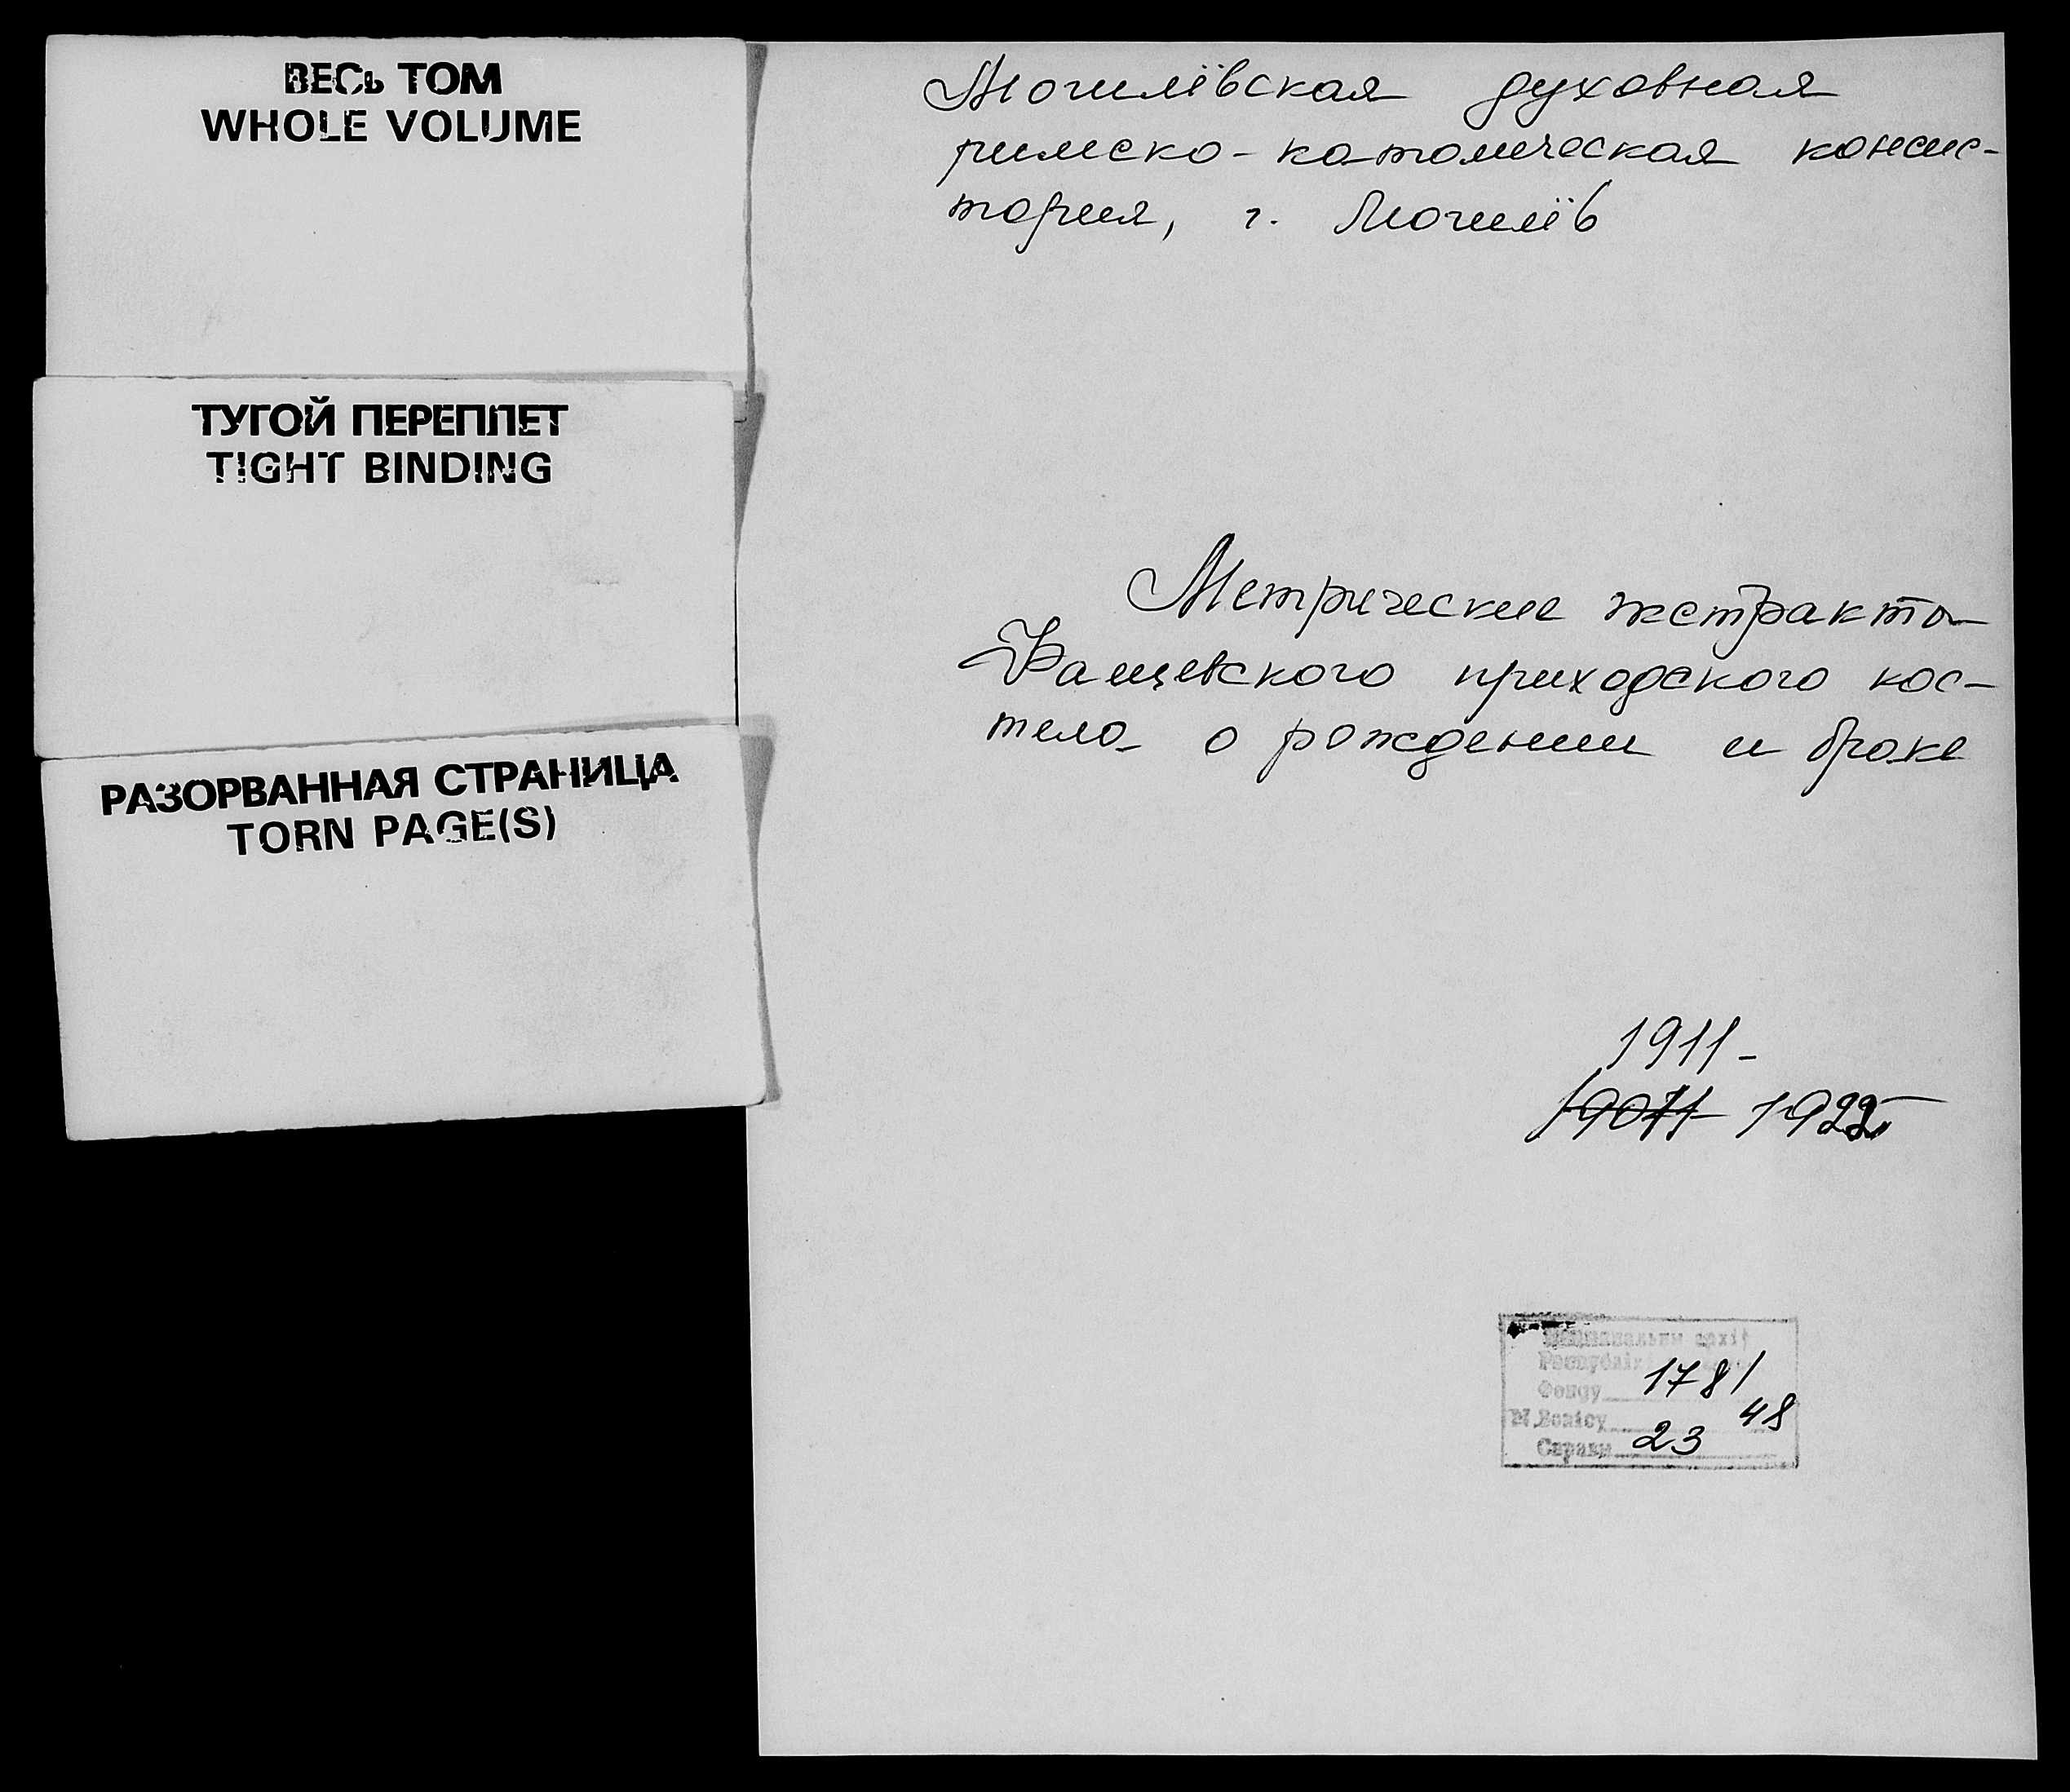 ВЕСЬ ТОМ
WHOLE VOLUME
ТУГОЙ ПЕРЕПЛЕТ
TIGHT BINDING
РАЗОРВАННАЯ СТРАНИЦА
TORN PAGE(S)
Могилёвская духовная
римско-католическая консис-
тория, г. Могилёв
Метрические экстракты
Фащевского приходского кос-
тела о рождении и браке
1911-
1922
архіў
Фонду 1781
Вопісу 48
Справы 23